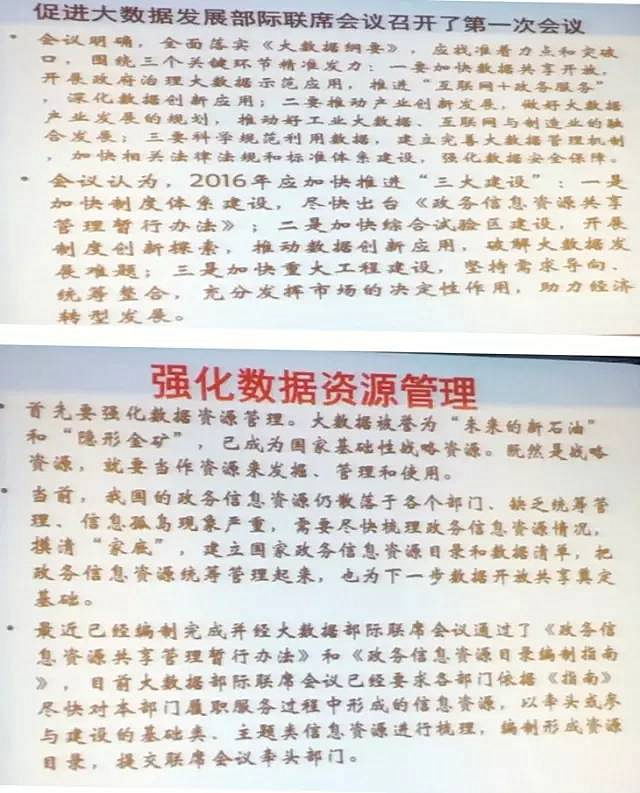 促进大数据发展部际联席会议召开了第一次会议
• 会议明确，全面落实《大数据纲要》，应找准着力点和突破
口，围绕三个关键环节精准发力：一要加快数据共享开放，
开展政府治理大数据示范应用，推进“互联网+政务服务”
，深化数据创新应用；二要推动产业创新发展，做好大数据
产业发展的规划，推动好工业大数据、互联网与制造业的融
合发展；三要科学规范利用数据，建立完善大数据管理机制
，加快相关法律法规和标准体系建设，强化数据安全保障。
• 会议认为，2016年应加快推进“三大建设”：一是
加快制度体系建设，尽快出台《政务信息资源共享
管理暂行办法》；二是加快综合试验区建设，开展
制度创新探索，推动数据创新应用，破解大数据发
展难题；三是加快重大工程建设，坚持需求导向、
统筹整合，充分发挥市场的决定性作用，助力经济
转型发展。
强化数据资源管理
• 首先要强化数据资源管理。大数据被誉为“未来的新石油”
和“隐形金矿”，已成为国家基础性战略资源。既然是战略
资源，就要当作资源来发掘、管理和使用。
• 当前，我国的政务信息资源仍散落于各个部门、缺乏统筹管
理、信息孤岛现象严重，需要尽快梳理政务信息资源情况，
摸清“家底”，建立国家政务信息资源目录和数据清单，把
政务信息资源统筹管理起来，也为下一步数据开放共享奠定
基础。
• 最近已经编制完成并经大数据部际联席会议通过了《政务信
息资源共享管理暂行办法》和《政务信息资源目录编制指南
》，目前大数据部际联席会议已经要求各部门依据《指南》
尽快对本部门履职服务过程中形成的信息资源，以牵头或参
与建设的基础类、主题类信息资源进行梳理，编制形成资源
目录，提交联席会议牵头部门。